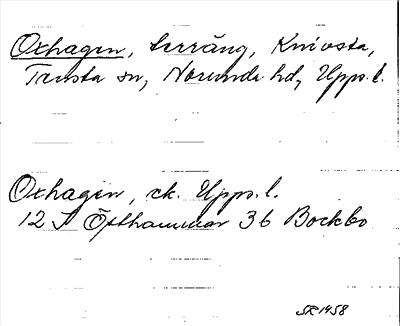 Oxhagen, terräng, Knivsta,
Tensta sn, Norunda hd, Upps. l.
Oxhagen, ek. Upps. l.
12 I Östhammar 3b Bockbo
SR 1458